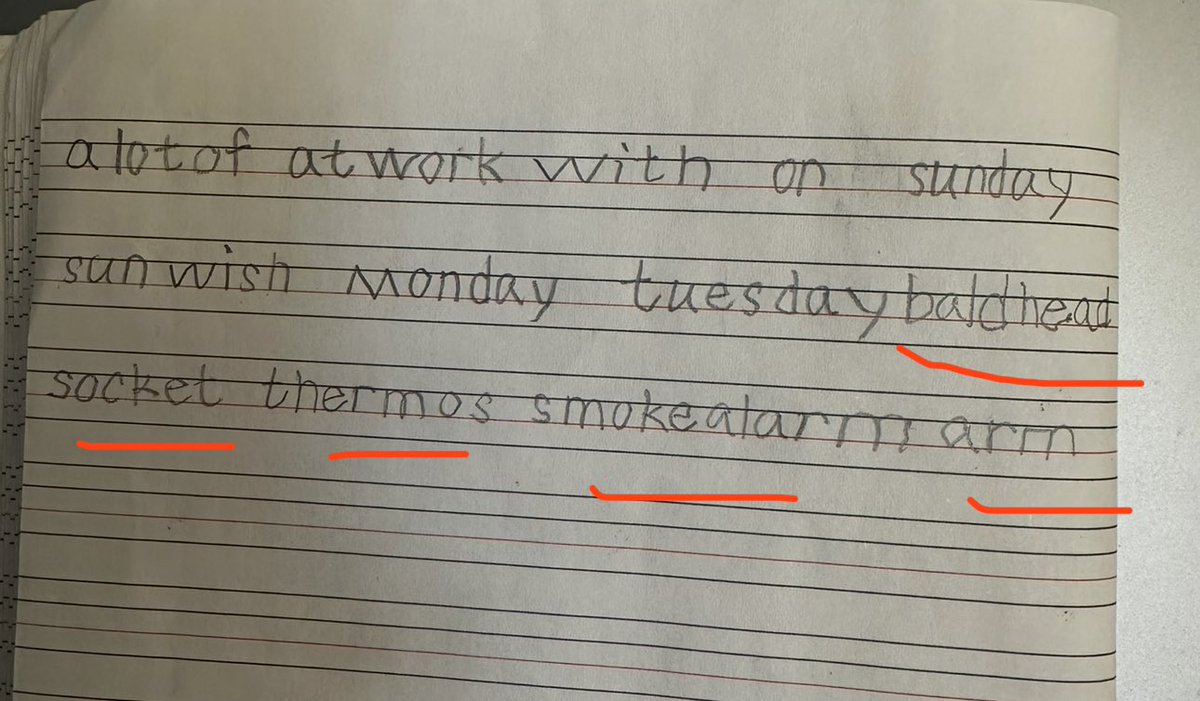 a lot of at work with on sunday
sun wish Monday tuesday bald head
socket thermos smoke alarm arm